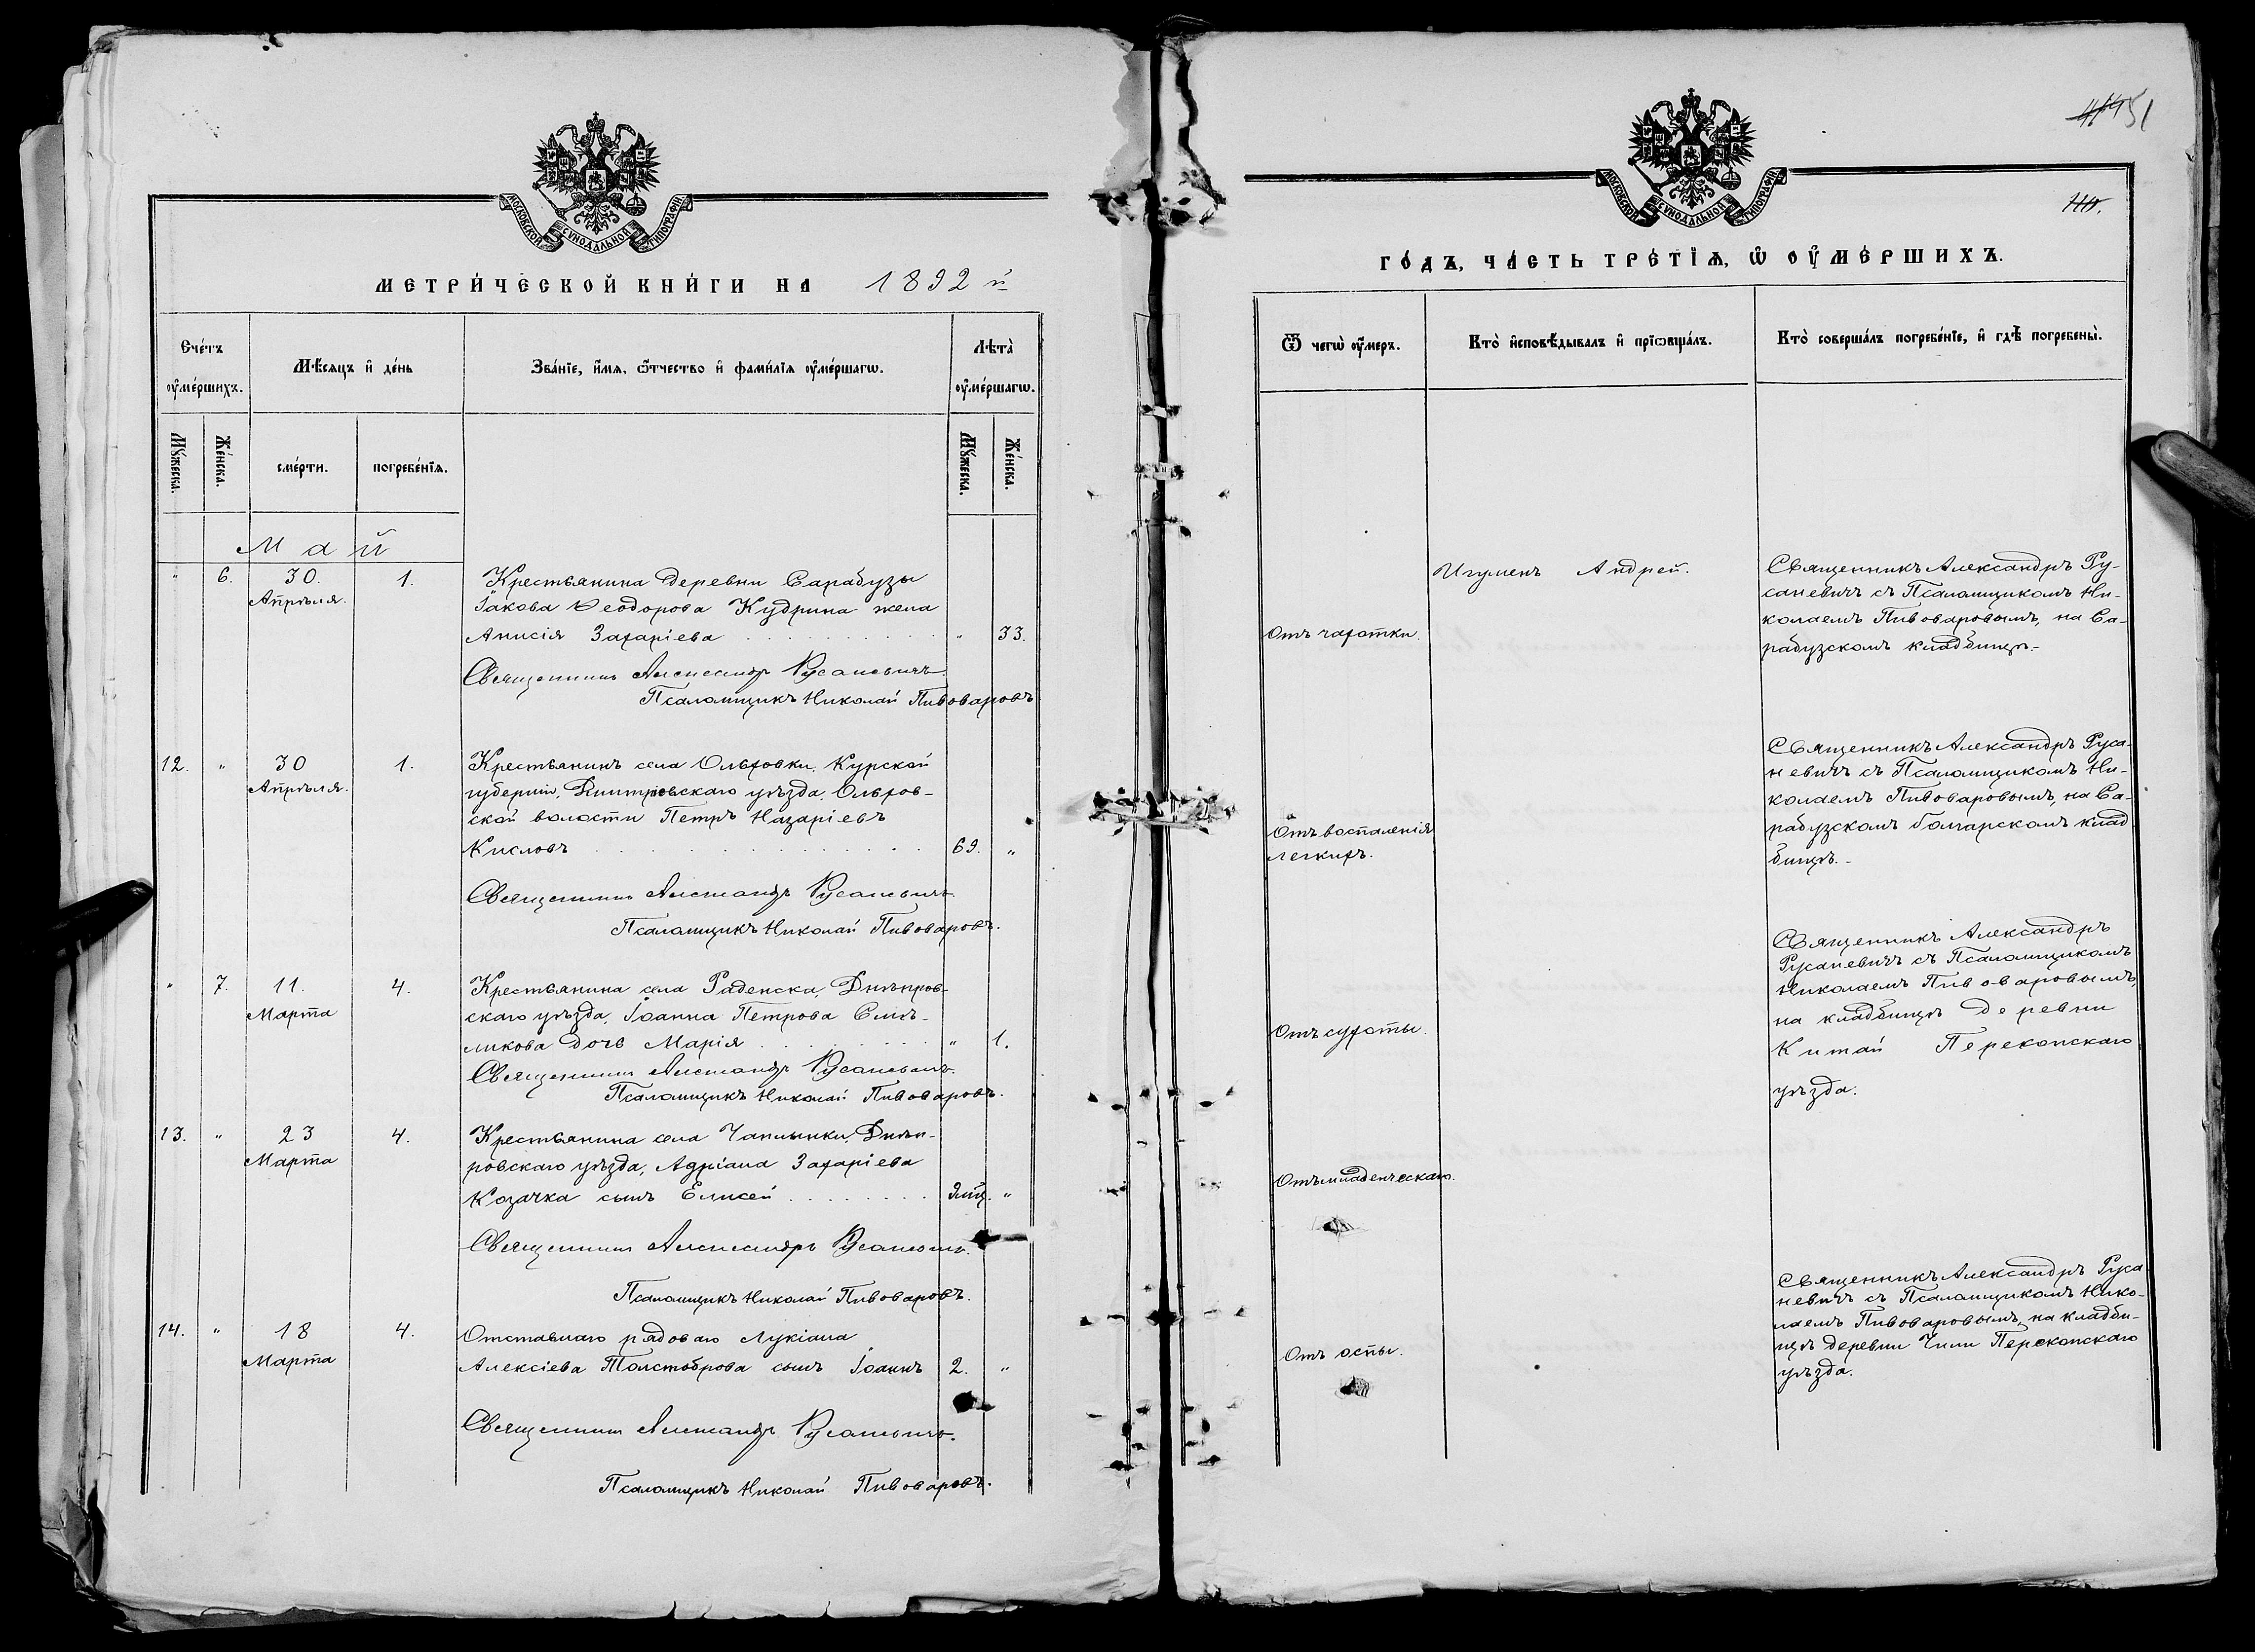 МОСКОВСКОЙ СѴНОДАЛЬНОЙ ТИПОГРАФІИ
МЕТРИ́ЧЕСКОЙ КНИ́ГИ НА 1892 й
Сче́тъ ᲂу҆ме́ршихъ.
Мѣ́сяцъ и҆ де́нь
Зва́нїе, и҆́мя, ѻ҆́тчество и҆ фами́лїя ᲂу҆ме́ршагѡ.
Лѣта̀ ᲂу҆ме́ршагѡ.
Мꙋ́жеска.
Же́нска.
сме́рти.
погребе́нїѧ.
Мꙋ́жеска.
Же́нска.
Май
" 6. 30. 1. Крестьянина деревни Сарабузы
Апрѣля. Іакова Ѳеодорова Кудрина жена
Анисія Захаріева " 33.
Священникъ Александръ Русаневичъ.
Псаломщикъ Николай Пивоваровъ
12. " 30 1. Крестьянинъ села Ольховки, Курской
Апрѣля. губерніи, Дмитровскаго уѣзда, Ольхов-
ской волости Петръ Назаріевъ
Кисловъ 69. "
Священникъ Александръ Русаневичъ.
Псаломщикъ Николай Пивоваровъ.
" 7. 11. 4. Крестьянина села Раденска, Днѣпров-
Марта скаго уѣзда, Іоанна Петрова Смѣ-
ликова дочь Марія " 1.
Священникъ Александръ Русаневичъ.
Псаломщикъ Николай Пивоваровъ.
13. " 23 4. Крестьянина села Чаплынки, Днѣп-
Марта ровскаго уѣзда, Адріана Захаріева
Козачка сынъ Елисей "
Священникъ Александръ Русаневичъ.
Псаломщикъ Николай Пивоваровъ.
14. " 18 4. Отставнаго рядоваго Лукіана
Марта Алексіева Толстоброва сынъ Іоаннъ 2. "
Священникъ Александръ Русаневичъ.
Псаломщикъ Николай Пивоваровъ.
51
МОСКОВСКОЙ СѴНОДАЛЬНОЙ ТИПОГРАФІИ
ГО́ДЪ, ЧА́СТЬ ТРЕ́ТЇѦ, Ѡ҆ ОУ҆МЕ́РШИХЪ.
Ѿ чегѡ̀ ᲂу҆́меръ.
Кто̀ и҆сповѣ́дывалъ и҆ прїѡбща́лъ.
Кто̀ соверша́лъ погребе́нїе, и҆ гдѣ̀ погребены̀.
Отъ чахотки.
Игуменъ Андрей.
Священникъ Александръ Ру-
саневичъ съ Псаломщикомъ Ни-
колаемъ Пивоваровымъ, на Са-
рабузскомъ кладбищѣ.-
Отъ воспаленія
легкихъ.
Священникъ Александръ Руса-
невичъ съ Псаломщикомъ Ни-
колаемъ Пивоваровымъ, на Са-
рабузскомъ болгарскомъ клад
бищѣ.-
Отъ сухоты.
Священникъ Александръ
Русаневичъ съ Псаломщикомъ
Николаемъ Пивоваровымъ,
на кладбищѣ деревни
Китай Перекопскаго
уѣзда.
Отъ младенческаго.
Отъ оспы.
Священникъ Александръ Руса
невичъ съ Псаломщикомъ Нико-
лаемъ Пивоваровымъ, на кладби-
щѣ деревни Чили Перекопскаго
уѣзда.